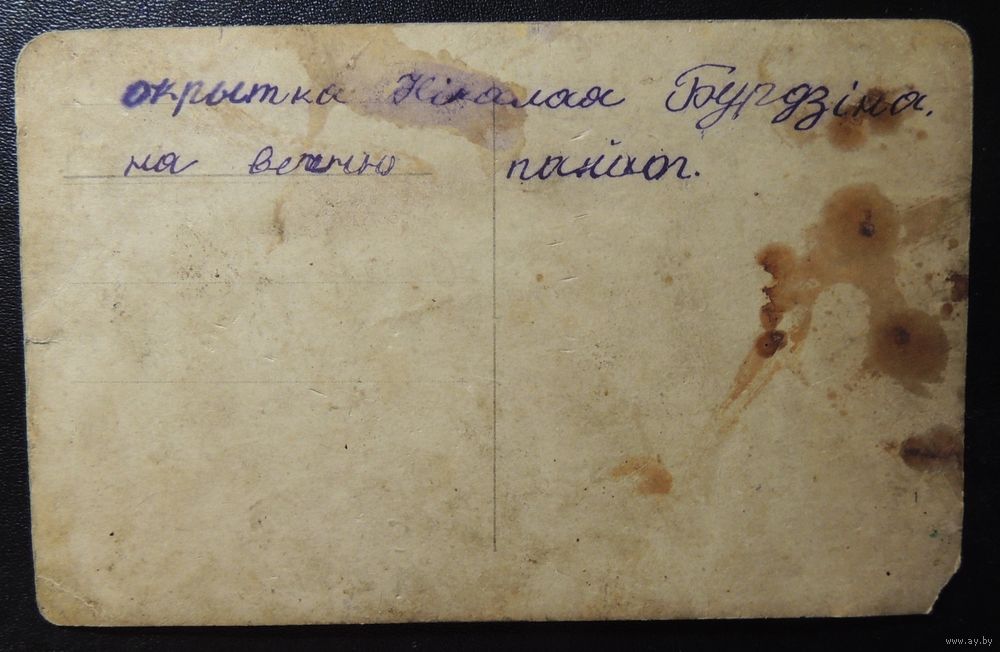 окрытка Нікалая Бурдзіна.
на вечню паміят.
www.ay.by